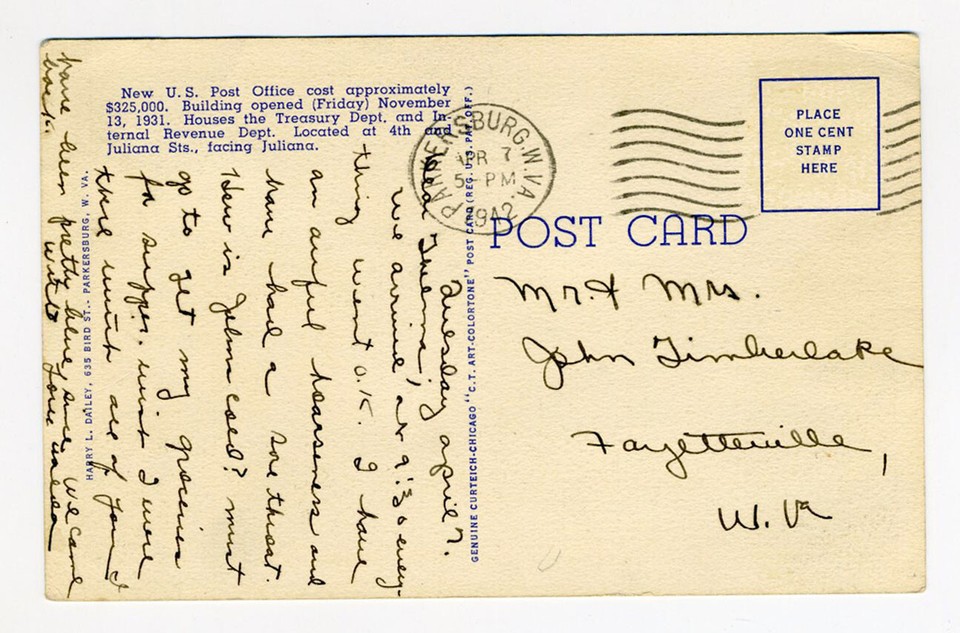 New U.S. Post Office cost approximately
$325,000. Building opened (Friday) November
13, 1931. Houses the Treasury Dept. and In-
ternal Revenue Dept. Located at 4th and
Juliana Sts., facing Juliana.
HARRY L. DAILEY, 635 BIRD ST., PARKERSBURG, W. VA.
GENUINE CURTEICH-CHICAGO "C.T. ART-COLORTONE" POST CARD (REG. U.S. PAT. OFF.)
PARKERSBURG, W.VA.
APR 7
5-PM
1942
PLACE
ONE CENT
STAMP
HERE
POST CARD
Mr. & Mrs.
John Timberlake
Fayetteville,
W. Va
Tuesday April 7.
Dear
We arrived at 9:30 every-
thing went O.K. I have
an awful hoarseness and
have had a sore throat.
How is John's cold? must
go to get my groceries
for supper. wish I were
there with all of you I
have been pretty blue since we came
back.
with love